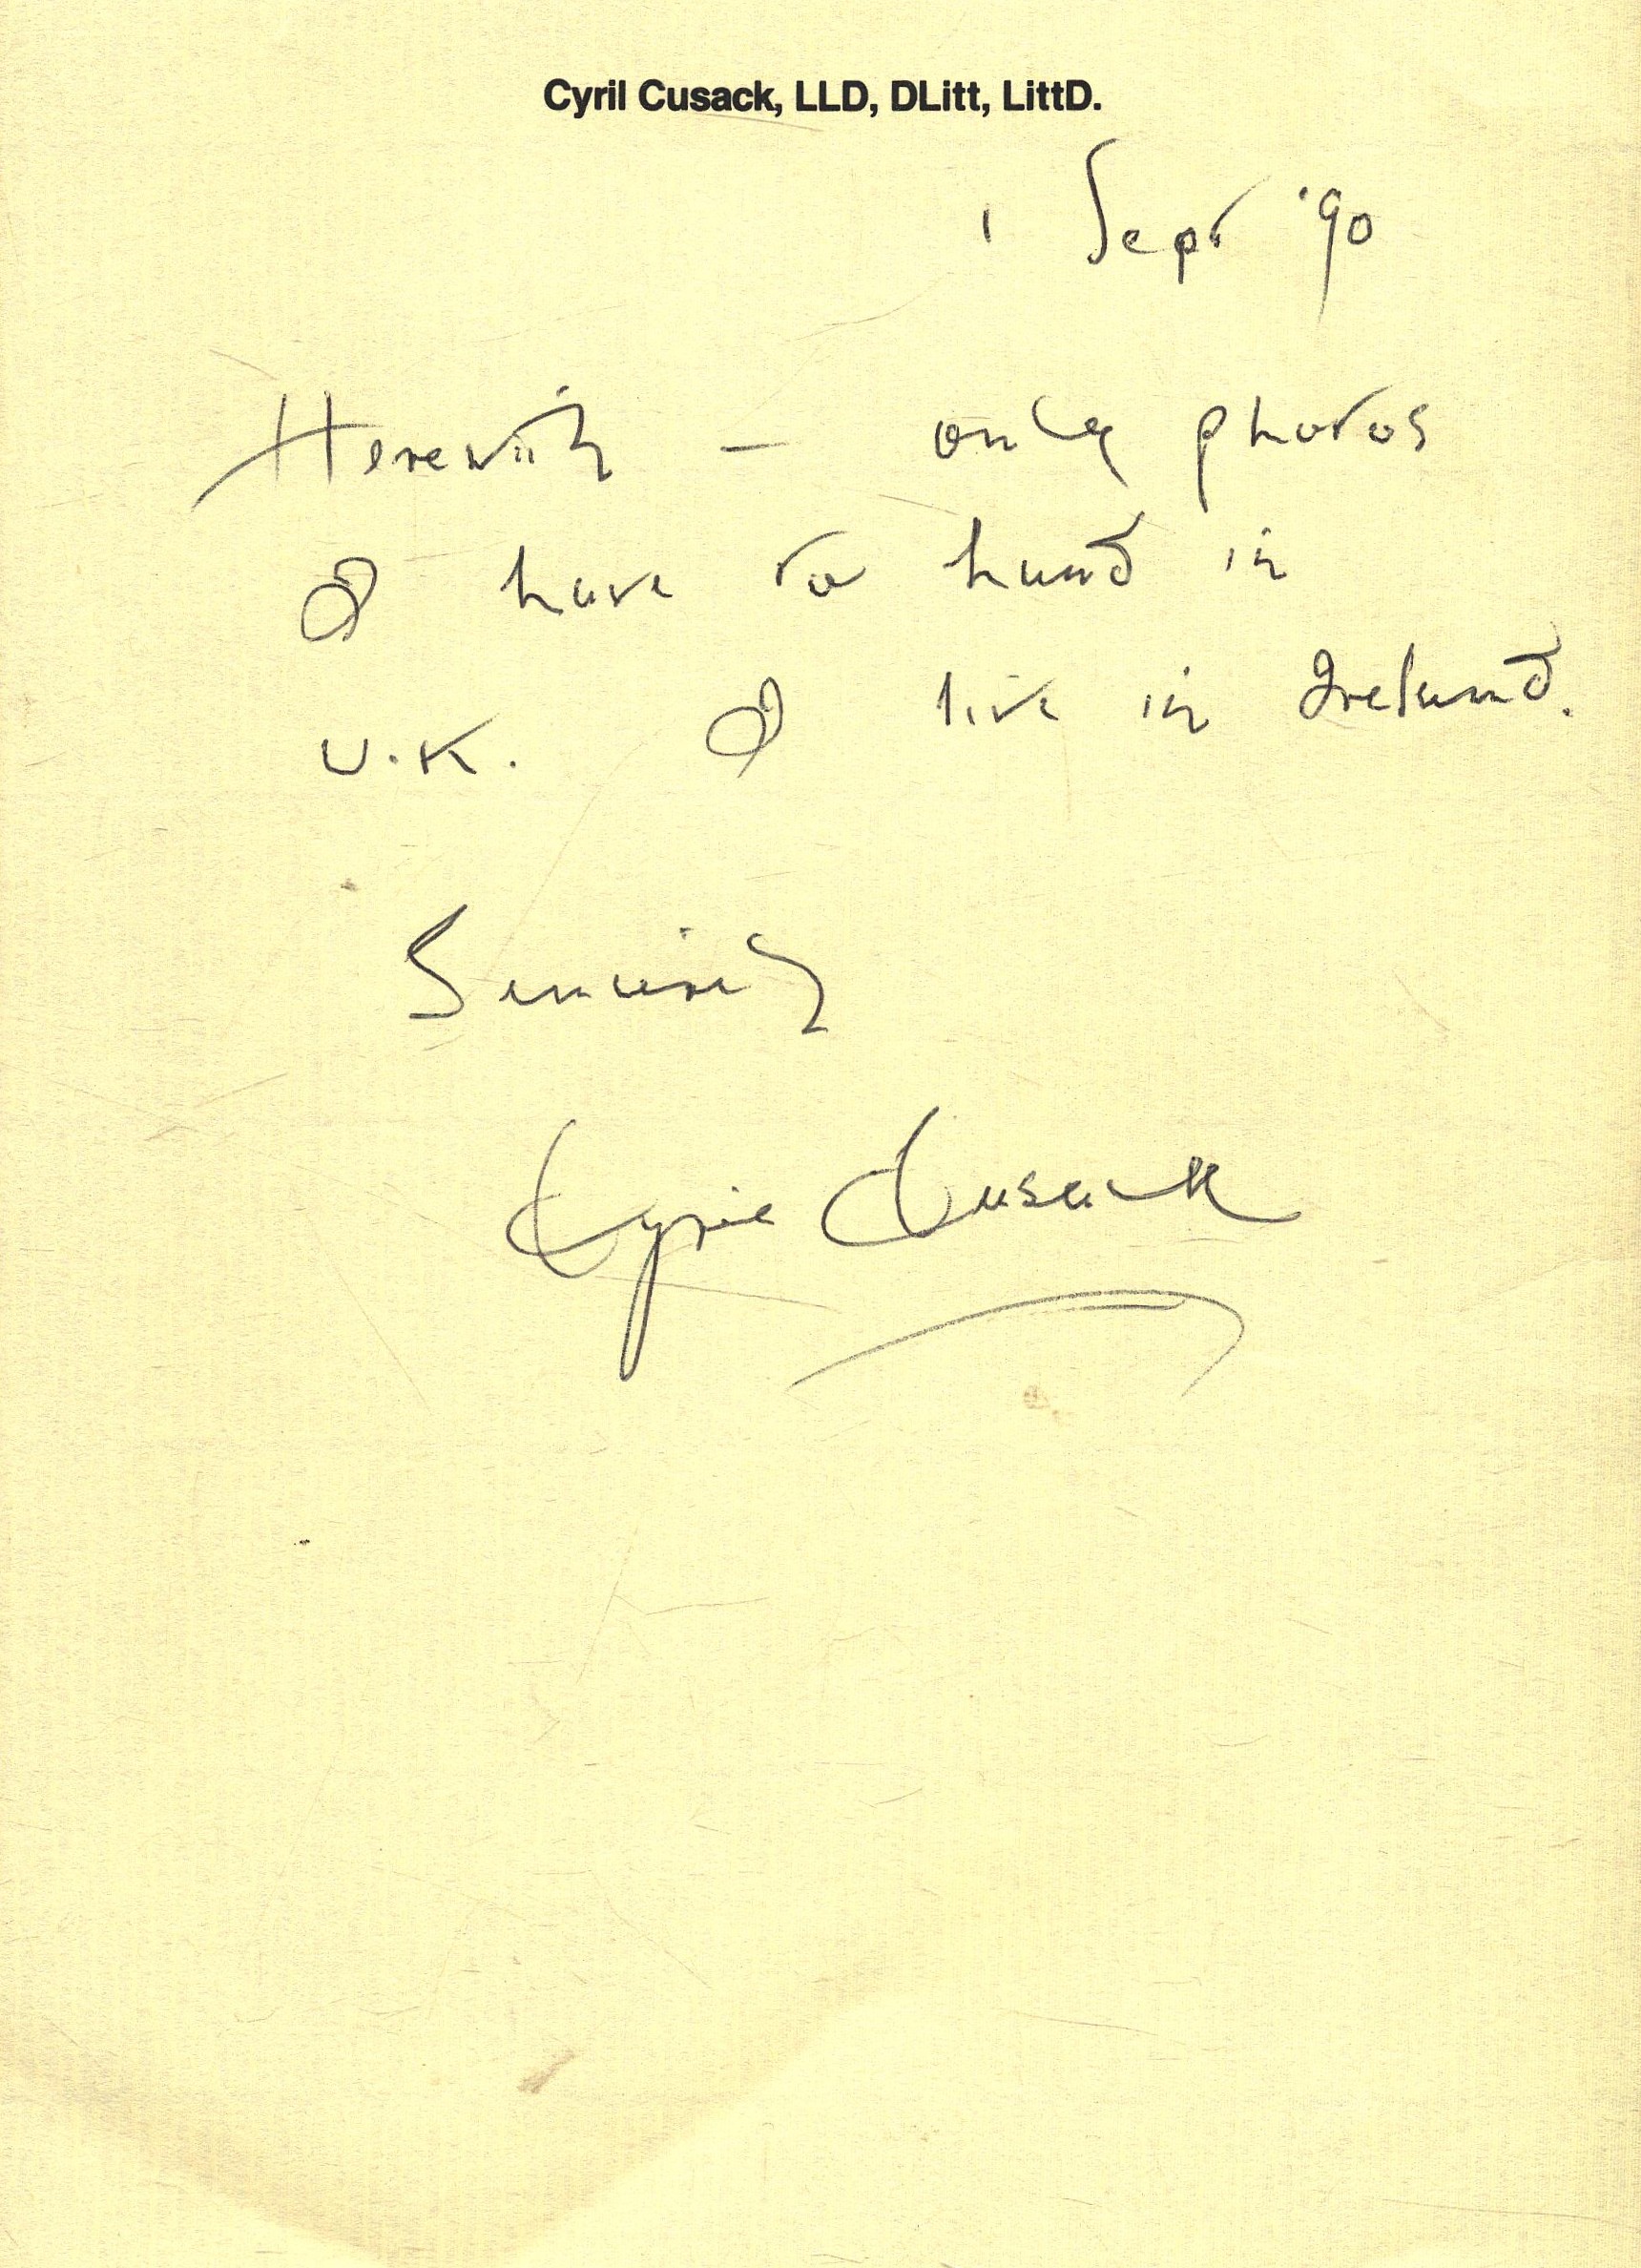 Cyril Cusack, LLD, DLitt, LittD.
1 Sept '90
Herewith – only photos
I have to hand in
U.K. I live in Ireland.
Sincerely
Cyril Cusack